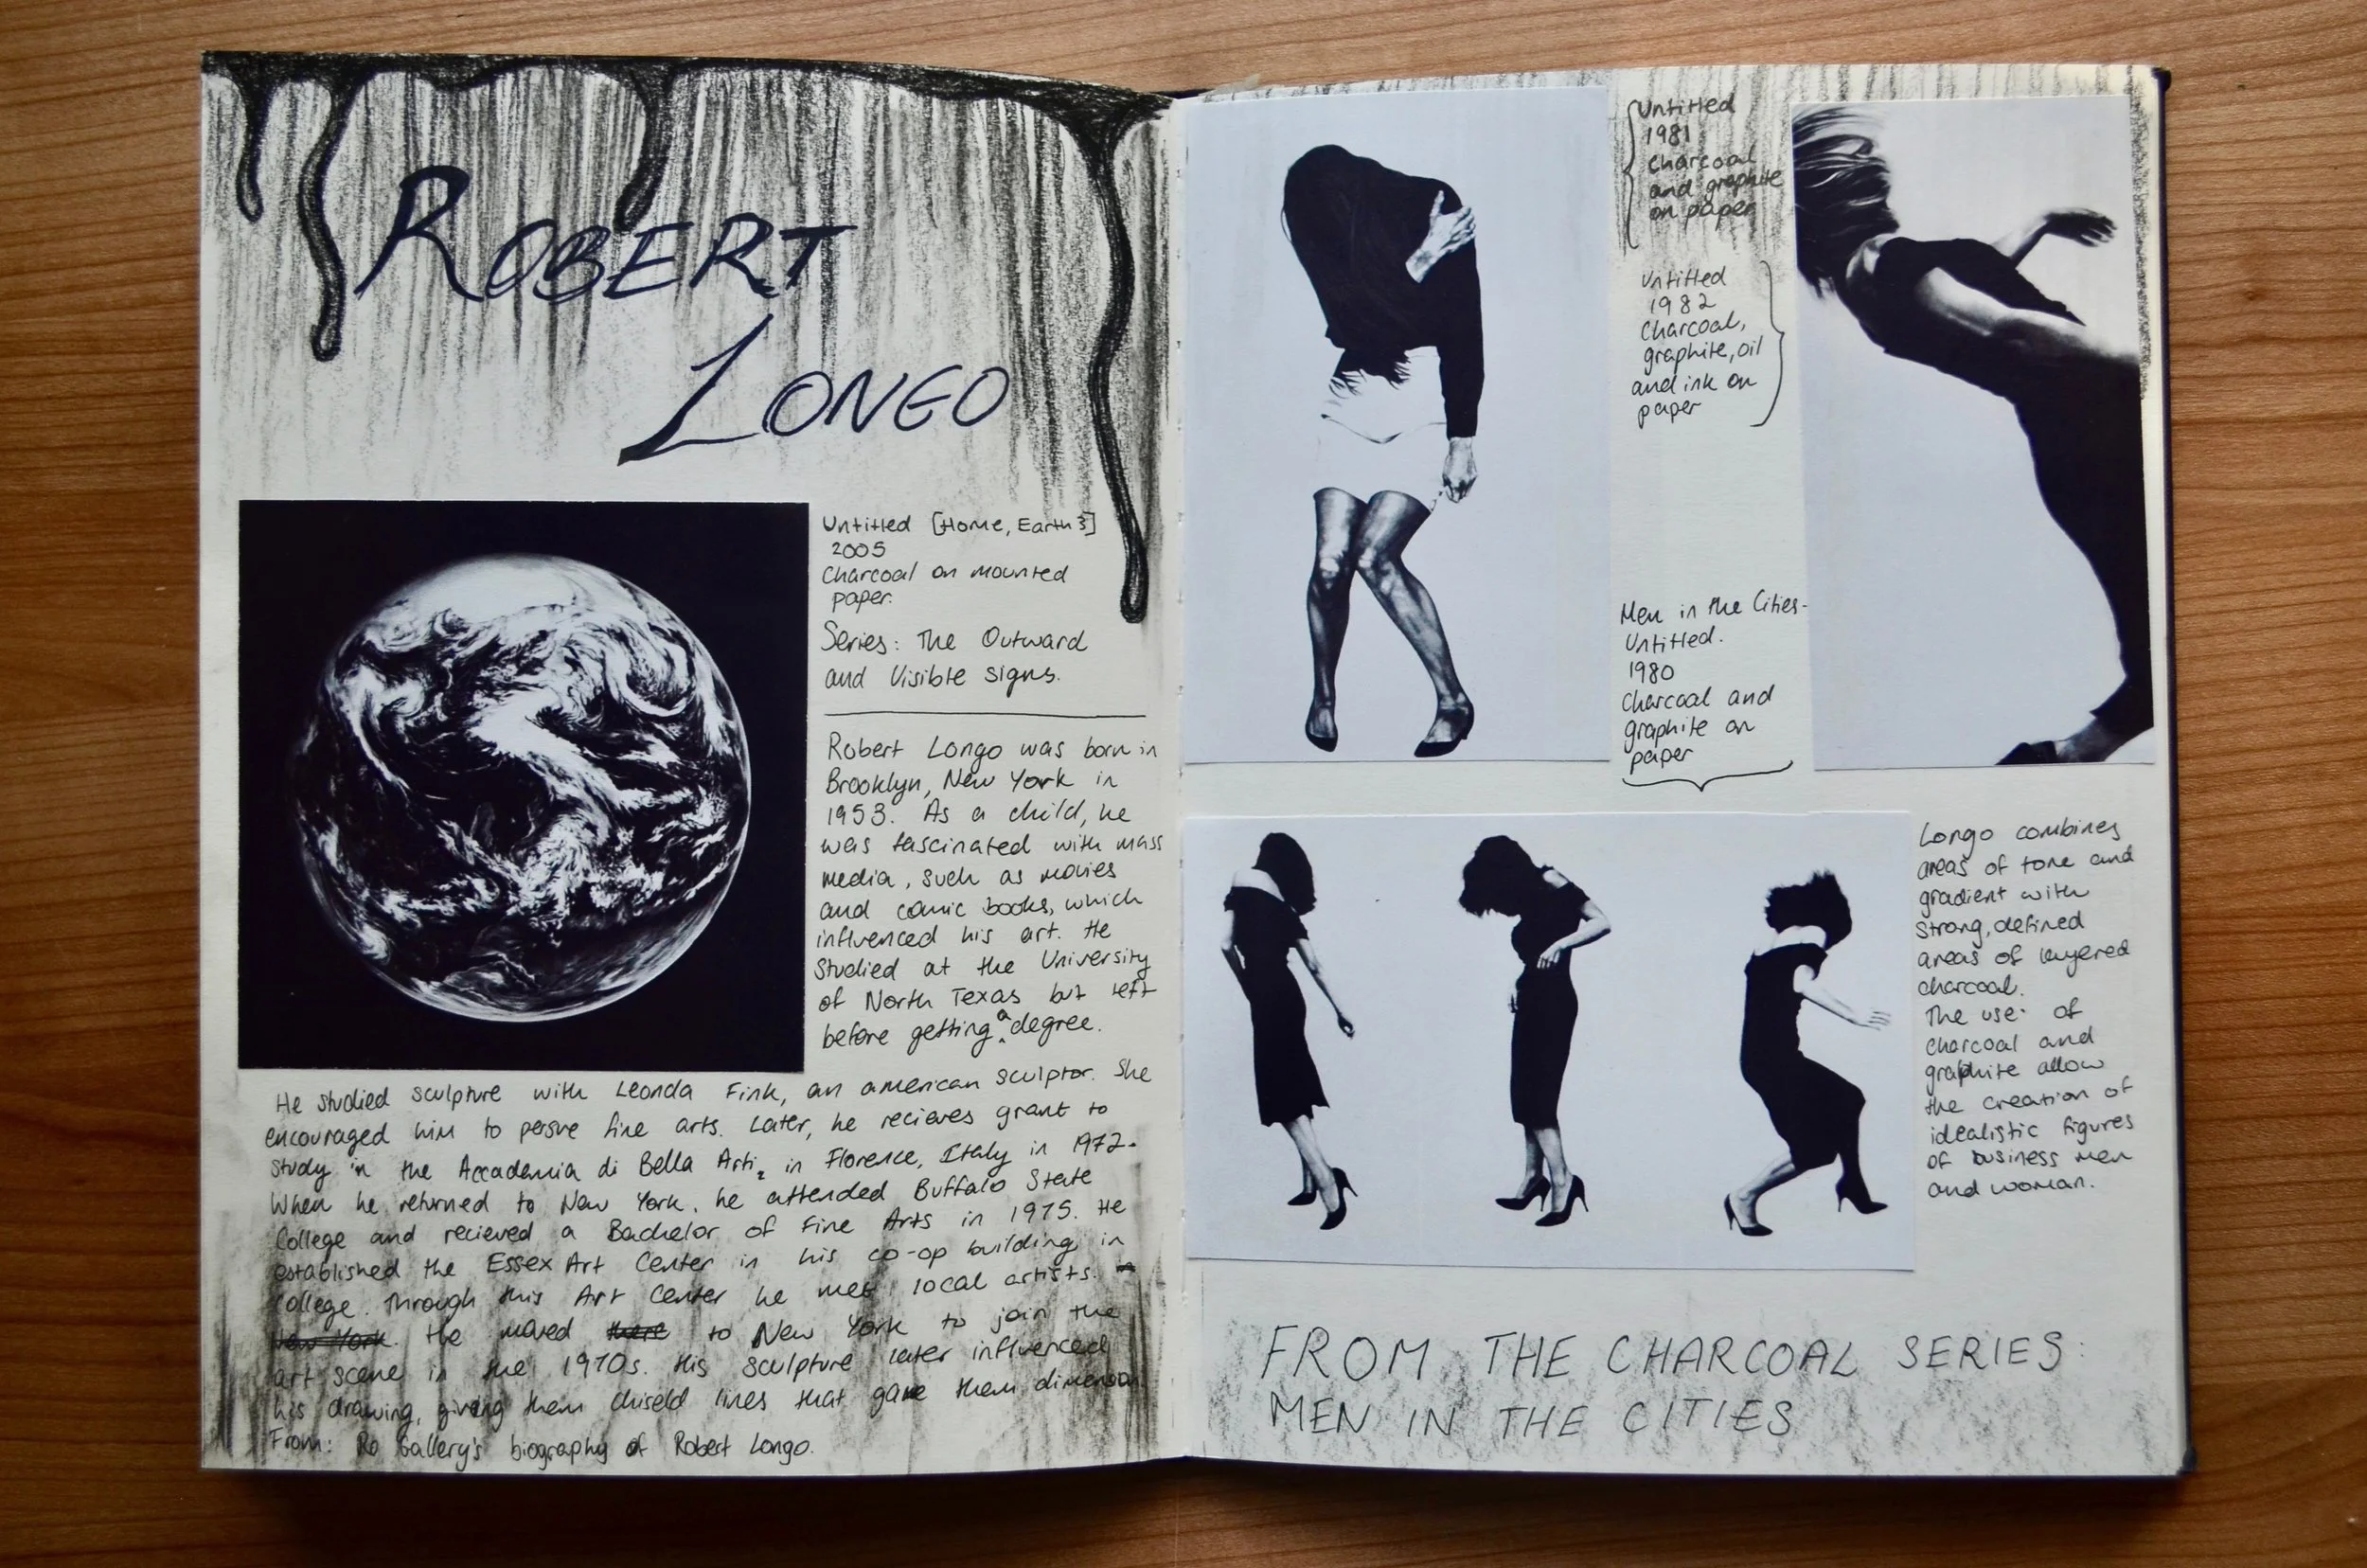 ROBERT
LONGO
Untitled [Home, Earth 3]
2005
Charcoal on mounted
paper.
Series: The Outward
and Visible signs.
Robert Longo was born in
Brooklyn, New York in
1953. As a child, he
was fascinated with mass
media, such as movies
and comic books, which
influenced his art. He
Studied at the University
of North Texas but left
before getting a degree.
He studied sculpture with Leonda Fink, an american sculptor. She
encouraged him to persue fine arts. Later, he recieves grant to
study in the Accademia di Bella Arti, in Florence, Italy in 1972.
When he returned to New York, he attended Buffalo State
College and recieved a Bachelor of Fine Arts in 1975. He
established the Essex Art Center in his co-op building in
College. Through this Art Center he met local artists. in
New York. He moved there to New York to join the
art scene in the 1970s. His sculpture later influenced
his drawing, giving them chiseld lines that gave them dimension.
From: Ro Gallery's biography of Robert Longo.
Untitled
1981
Charcoal
and graphite
on paper
Untitled
1982
Charcoal,
graphite, oil
and ink on
paper
Men in the Cities-
Untitled.
1980
Charcoal and
graphite on
paper
Longo combines
areas of tone and
gradient with
strong, defined
areas of layered
charcoal.
The use of
charcoal and
graphite allow
the creation of
idealistic figures
of business men
and woman.
FROM THE CHARCOAL SERIES:
MEN IN THE CITIES